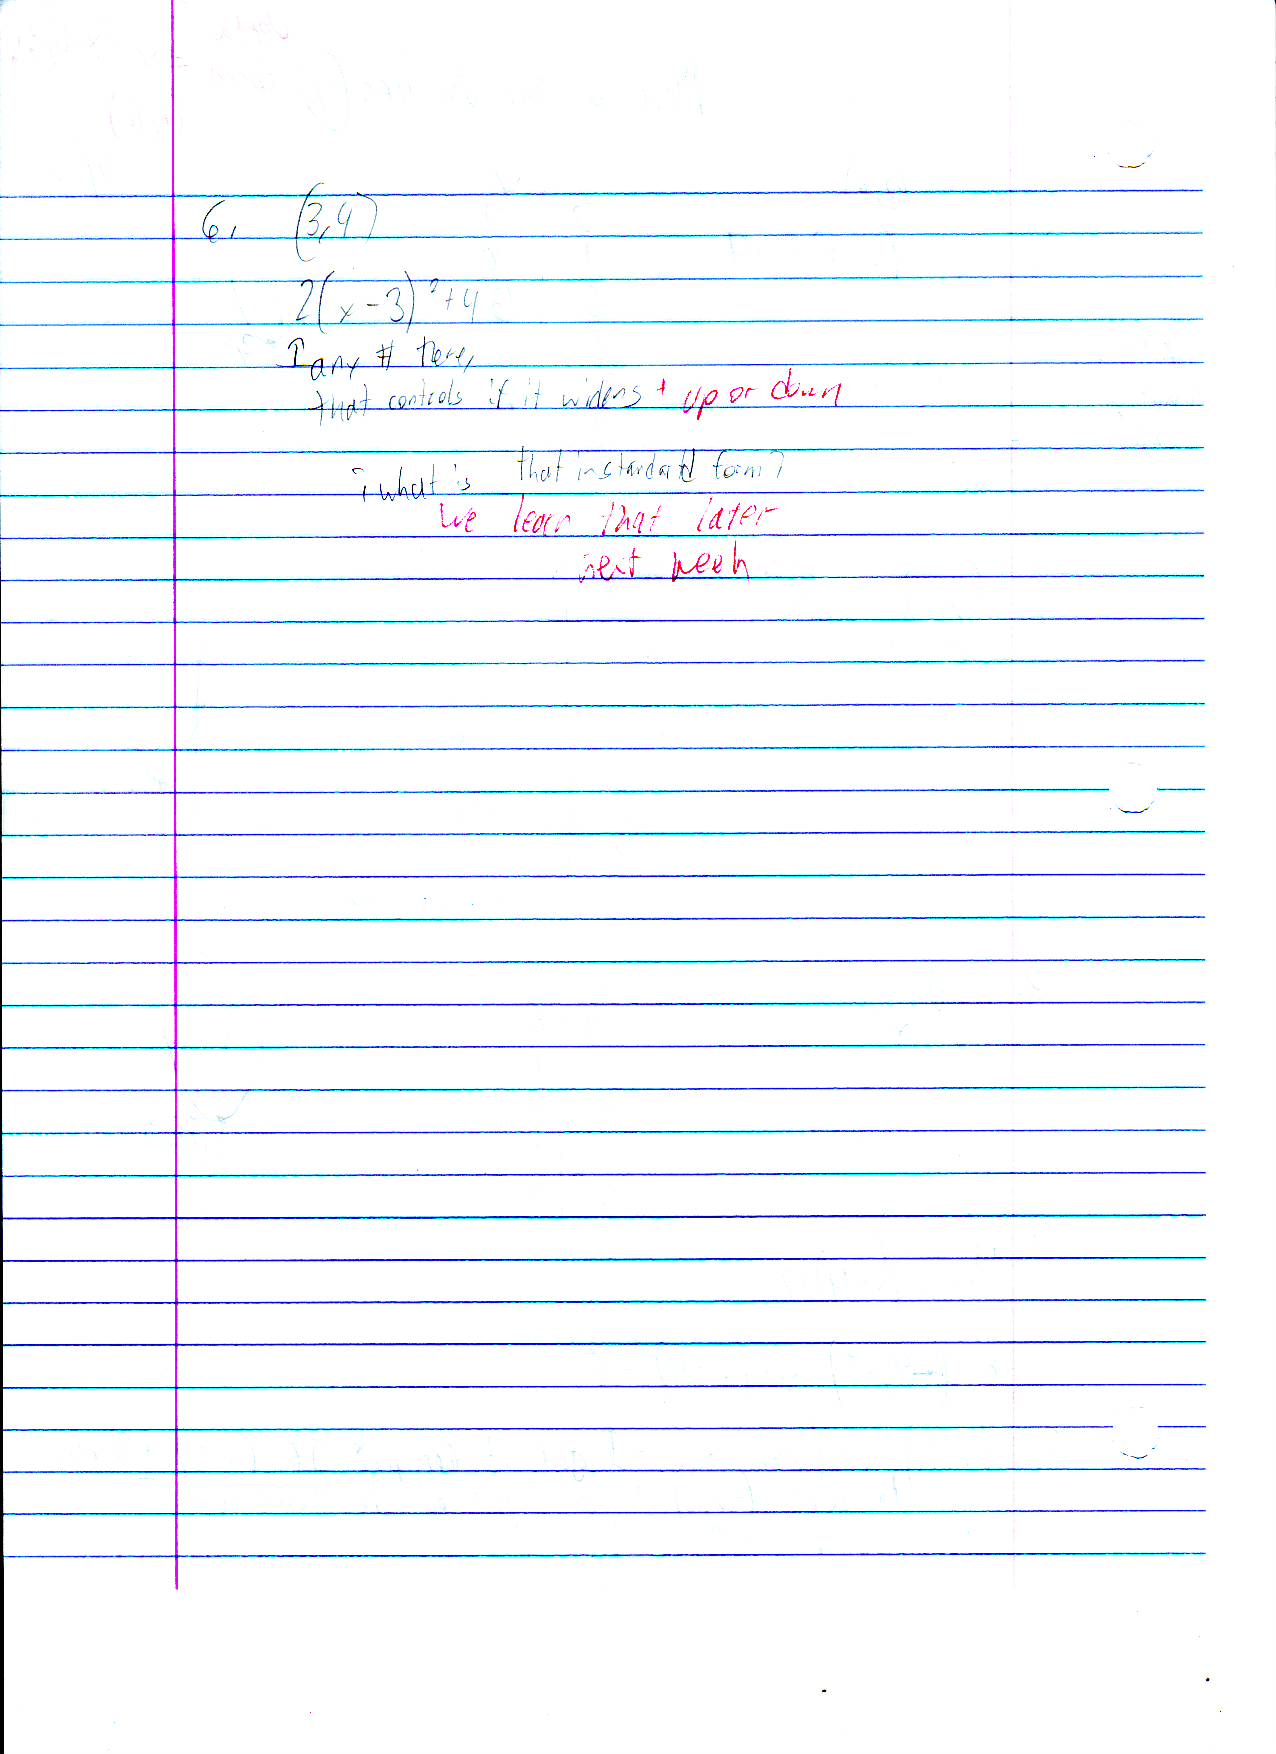 6. (3,4)
2(x-3)²+4
↑ any # here,
that controls if it widens + up or down
¿ what is that in standard form?
we learn that later
next week